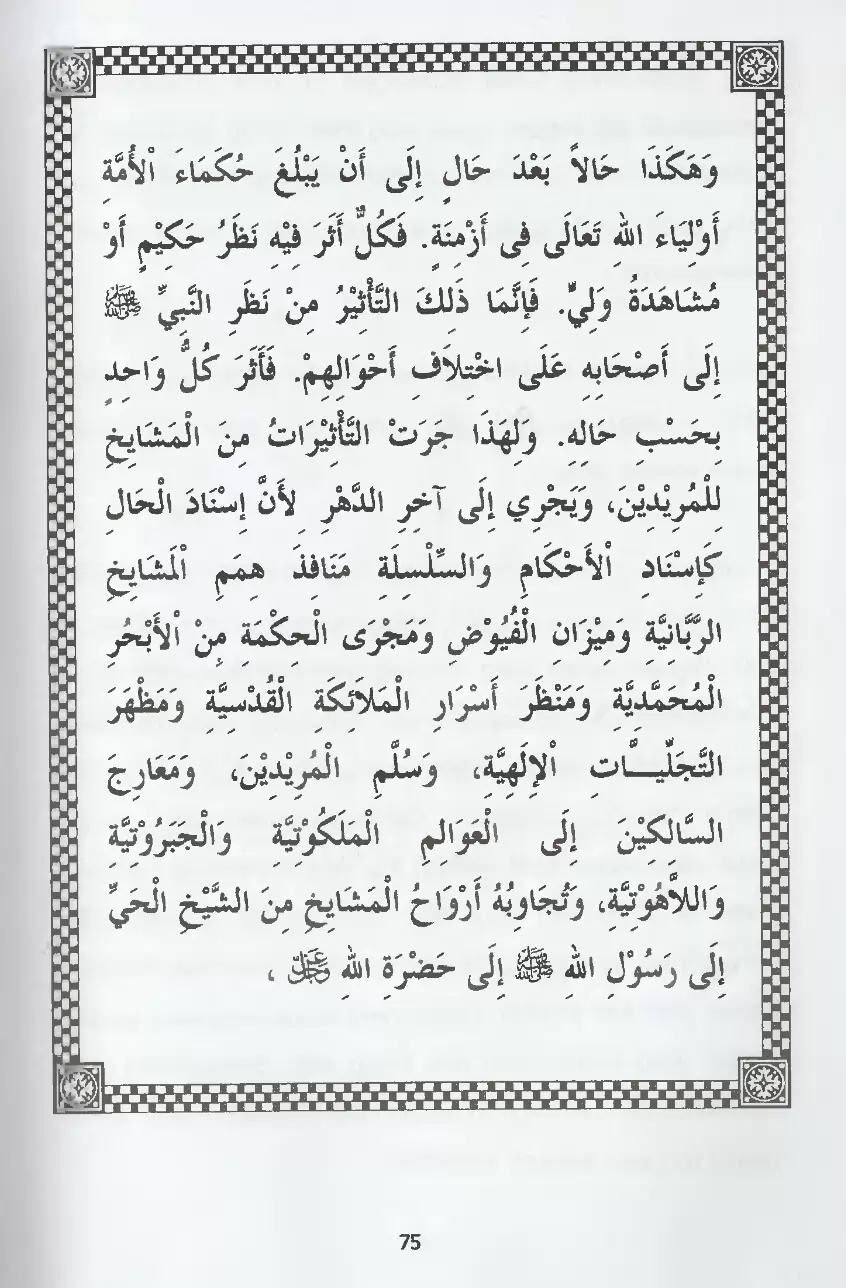 وَهَكَذَا حَالاً بَعْدَ حَالٍ إِلَى أَنْ يَبْلُغَ حُكَمَاءَ الأُمَّةِ
أَوْلِيَاءَ اللهِ تَعَالَى فِى أَزْمِنَةٍ. فَكُلٌّ أَثَرَ فِيْهِ نَظَرُ حَكِيْمٍ أَوْ
مُشَاهَدَةُ وَلِيٍّ. فَإِنَّمَا ذَلِكَ التَّأْثِيْرُ مِنْ نَظَرِ النَّبِيِّ ﷺ
إِلَى أَصْحَابِهِ عَلَى اخْتِلاَفِ أَحْوَالِهِمْ. فَأَثَرَ كُلُّ وَاحِدٍ
بِحَسْبِ حَالِهِ. وَلِهَذَا جَرَتْ التَّأْثِيْرَاتُ مِنَ الْمَشَايِخِ
لِلْمُرِيْدِيْنَ، وَيَجْرِي إِلَى آخِرِ الدَّهْرِ لِأَنَّ إِسْنَادَ الْحَالِ
كَإِسْنَادِ الأَحْكَامِ وَالسِّلْسِلَةِ مَنَافِذَ هِمَمِ الْمَشَايِخِ
الرَّبَّانِيَّةِ وَمِيْزَانِ الْفُيُوْضِ وَمَجْرَى الْحِكْمَةِ مِنْ الأَبْحُرِ
الْمُحَمَّدِيَّةِ وَمَنْظَرَ أَسْرَارِ الْمَلاَئِكَةِ الْقُدْسِيَّةِ وَمَظْهَرَ
التَّجَلِّيَــاتِ الإِلَهِيَّةِ، وَسُلَّمِ الْمُرِيْدِيْنَ، وَمَعَارِجَ
السَّالِكِيْنَ إِلَى الْعَوَالِمِ الْمَلَكُوْتِيَّةِ وَالْجَبَرُوْتِيَّةِ
وَاللاَّهُوْتِيَّةِ، وَتُجَاوِبُهُ أَرْوَاحُ الْمَشَايِخِ مِنَ الشَّيْخِ الْحَيِّ
إِلَى رَسُوْلِ اللهِ ﷺ إِلَى حَضْرَةِ اللهِ عَزَّ وَجَلَّ ،
75